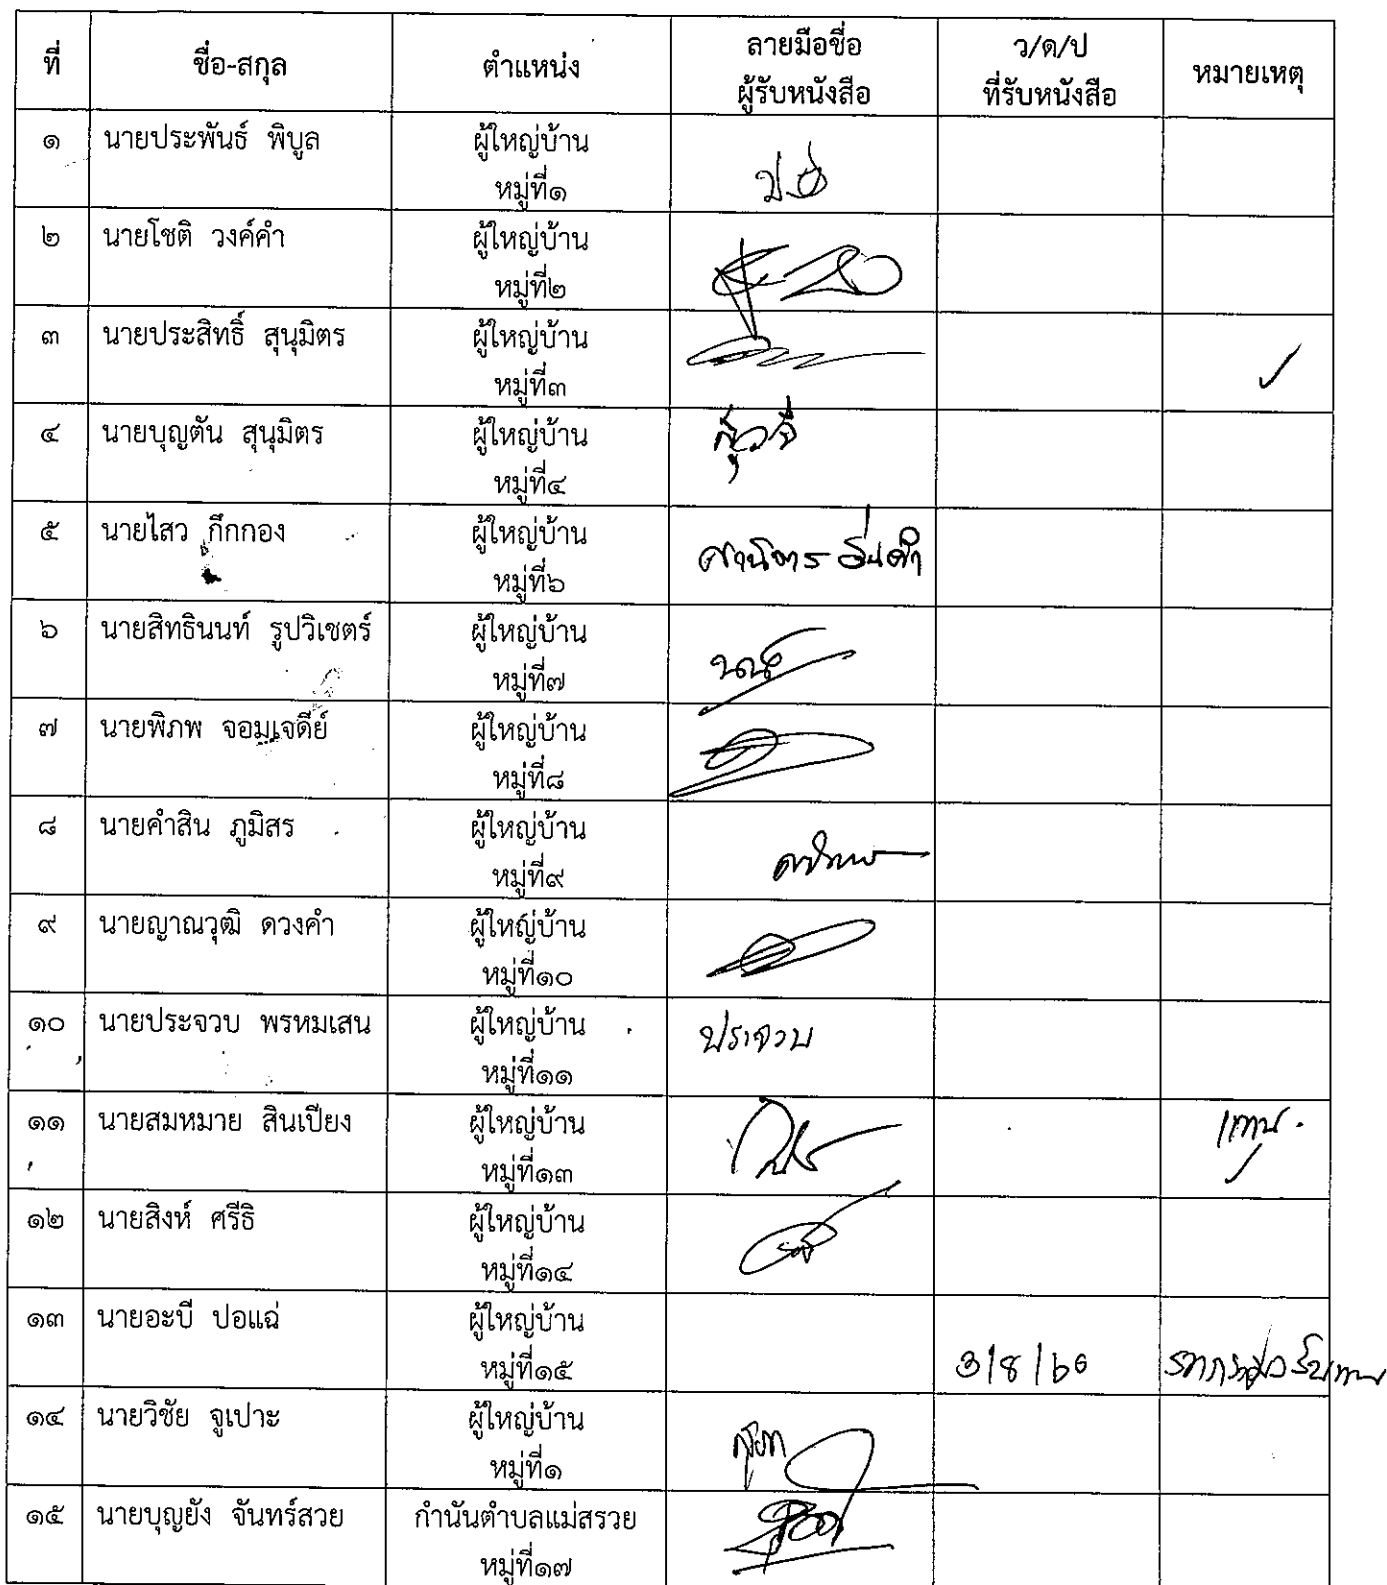 ที่ ชื่อ-สกุล ตำแหน่ง ลายมือชื่อ ผู้รับหนังสือ ว/ด/ป ที่รับหนังสือ หมายเหตุ
๑ นายประพันธ์ พิบูล ผู้ใหญ่บ้าน
หมู่ที่๑
๒ นายโชติ วงค์คำ ผู้ใหญ่บ้าน
หมู่ที่๒
๓ นายประสิทธิ์ สุนุมิตร ผู้ใหญ่บ้าน
หมู่ที่๓
๔ นายบุญตัน สุนุมิตร ผู้ใหญ่บ้าน
หมู่ที่๔
๕ นายไสว กึกกอง ผู้ใหญ่บ้าน
หมู่ที่๖
๖ นายสิทธินนท์ รูปวิเชตร์ ผู้ใหญ่บ้าน
หมู่ที่๗
๗ นายพิภพ จอมเจดีย์ ผู้ใหญ่บ้าน
หมู่ที่๘
๘ นายคำสิน ภูมิสร ผู้ใหญ่บ้าน
หมู่ที่๙
๙ นายญาณวุฒิ ดวงคำ ผู้ใหญ่บ้าน
หมู่ที่๑๐
๑๐ นายประจวบ พรหมเสน ผู้ใหญ่บ้าน ประจวบ
หมู่ที่๑๑
๑๑ นายสมหมาย สินเปียง ผู้ใหญ่บ้าน แทน
หมู่ที่๑๓
๑๒ นายสิงห์ ศรีธิ ผู้ใหญ่บ้าน
หมู่ที่๑๔
๑๓ นายอะบี ปอแฉ่ ผู้ใหญ่บ้าน
หมู่ที่๑๕ 3/8/66
๑๔ นายวิชัย จูเปาะ ผู้ใหญ่บ้าน
หมู่ที่๑
๑๕ นายบุญยัง จันทร์สวย กำนันตำบลแม่สรวย
หมู่ที่๑๗